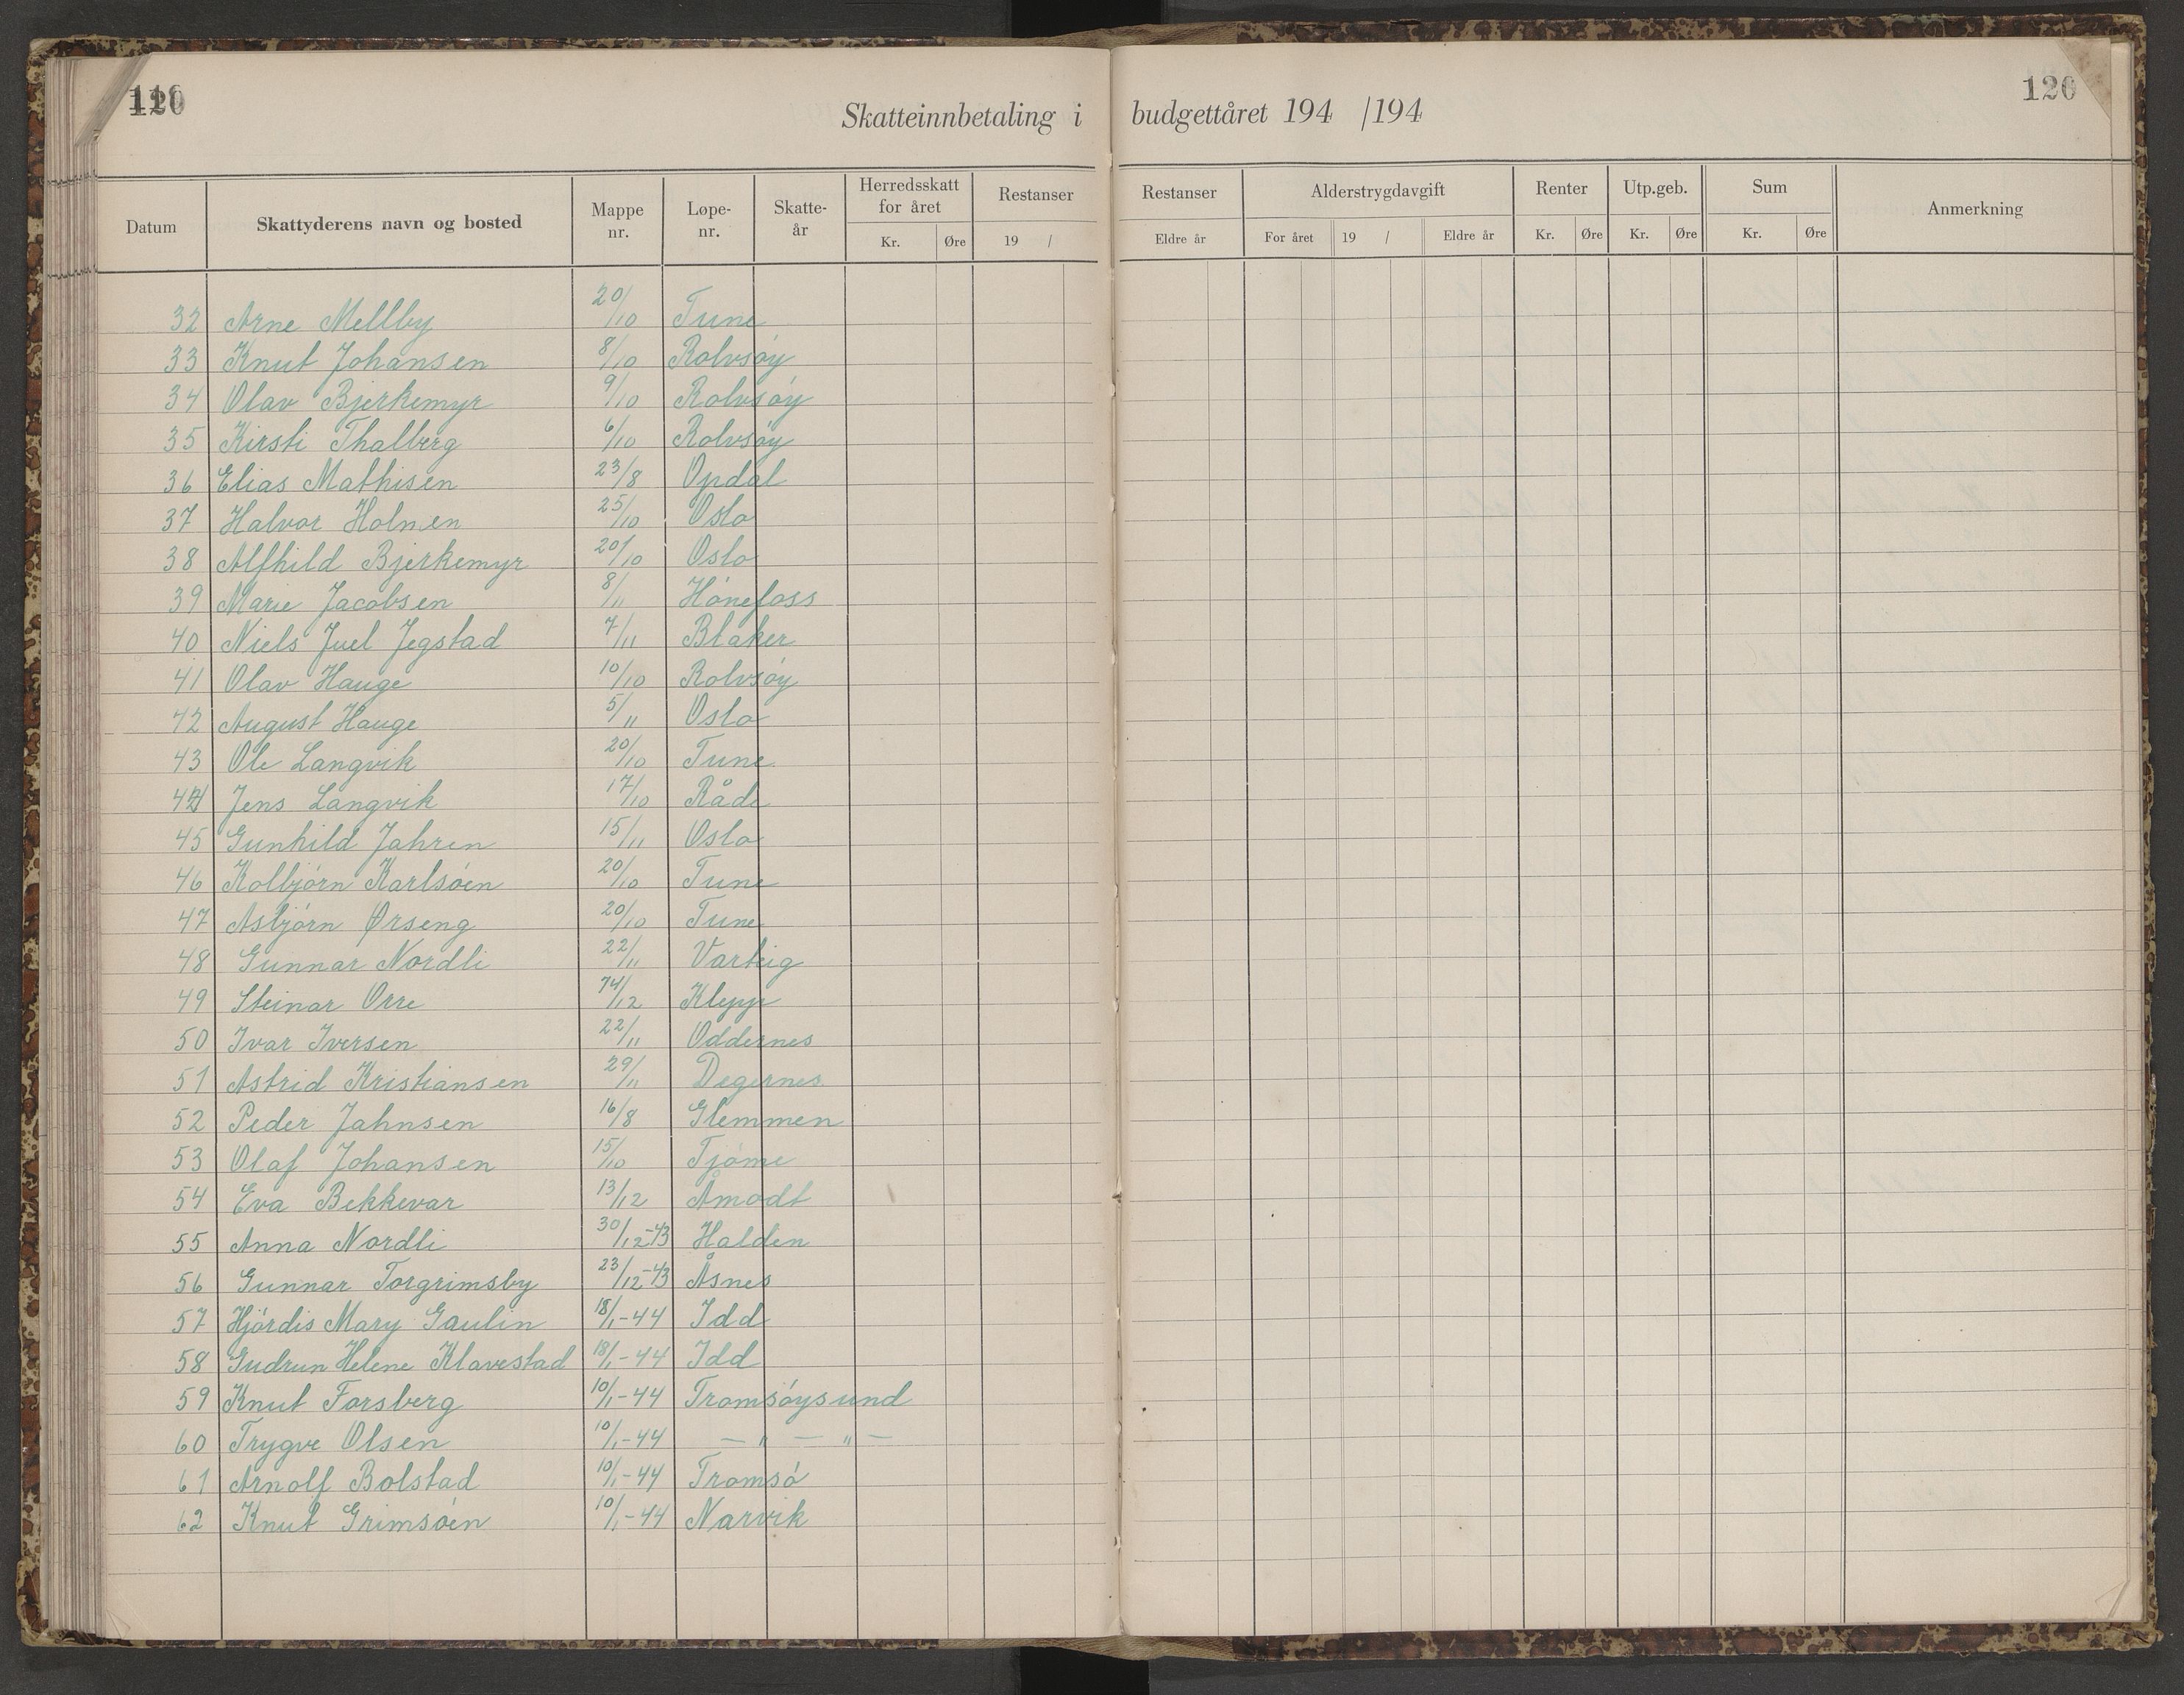 120
120
Skatteinnbetaling i budgettåret 194 /194
Datum Skattyderens navn og bosted Mappe nr. Løpe- nr. Skatte- år Herredsskatt for året Kr. Øre Restanser 19 / Restanser Eldre år Alderstrygdavgift For året 19 / Eldre år Renter Kr. Øre Utp.geb. Kr. Øre Sum Kr. Øre Anmerkning
32 Arne Mellby 20/10 Tune
33 Knut Johansen 8/10 Rolvsøy
34 Olav Bjerkemyr 9/10 Rolvsøy
35 Kirsti Thalberg 6/10 Rolvsøy
36 Elias Mathisen 23/8 Opdal
37 Halvor Holmen 25/10 Oslo
38 Alfhild Bjerkemyr 20/10 Oslo
39 Marie Jacobsen 8/11 Hønefoss
40 Niels Juel Jegstad 7/11 Blaker
41 Olav Hauge 10/10 Rolvsøy
42 August Hauge 5/11 Oslo
43 Ole Langvik 20/10 Tune
44 Jens Langvik 17/10 Råde
45 Gunhild Jahren 15/11 Oslo
46 Kolbjørn Karlsøen 20/10 Tune
47 Asbjørn Ørseng 20/10 Tune
48 Gunnar Nordli 22/11 Varteig
49 Steinar Orre 14/12 Klepp
50 Ivar Iversen 22/11 Oddernes
51 Astrid Kristiansen 29/11 Degernes
52 Peder Jahnsen 16/8 Glemmen
53 Olaf Johansen 15/10 Tjøme
54 Eva Bekkevar 13/12 Åmodt
55 Anna Nordli 30/12-43 Halden
56 Gunnar Torgrimsby 23/12-43 Åsnes
57 Hjørdis Mary Gaulin 18/1-44 Idd
58 Gudrun Helene Klavestad 18/1-44 Idd
59 Knut Forsberg 10/1-44 Tromsøysund
60 Trygve Olsen 10/1-44 — " — " —
61 Arnolf Bolstad 10/1-44 Tromsø
62 Knut Grimsøen 10/1-44 Narvik